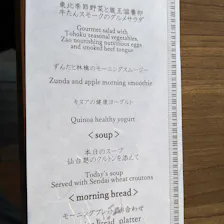 東北季節野菜と蔵王滋養卵
牛たんスモークのグルメサラダ
Gourmet salad with
Tohoku seasonal vegetables,
Zao nourishing nutrition eggs,
and smoked beef tongue
ずんだと林檎のモーニングスムージー
Zunda and apple morning smoothie
キヌアの健康ヨーグルト
Quinoa healthy yogurt
< soup >
本日のスープ
仙台麩のクルトンを添えて
Today's soup
Served with Sendai wheat croutons
< morning bread >
モーニングブレッド盛り合わせ
platter